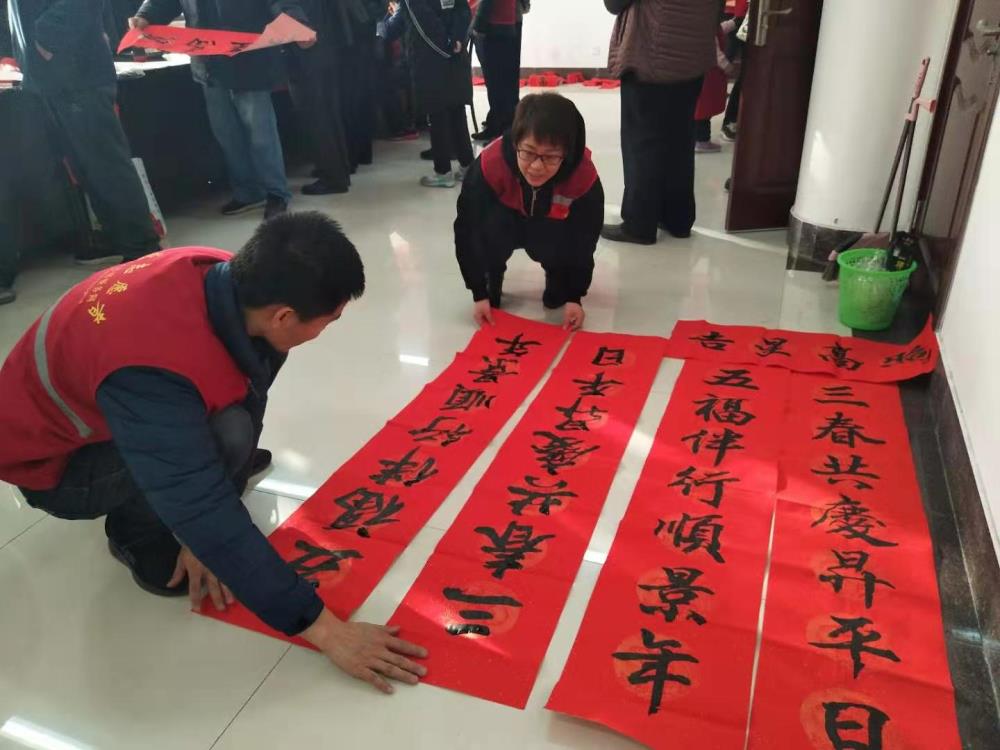 吉星高照
三春共慶昇平日
五福伴行順景年
三春共慶昇平日
五福伴行順景年
志愿者